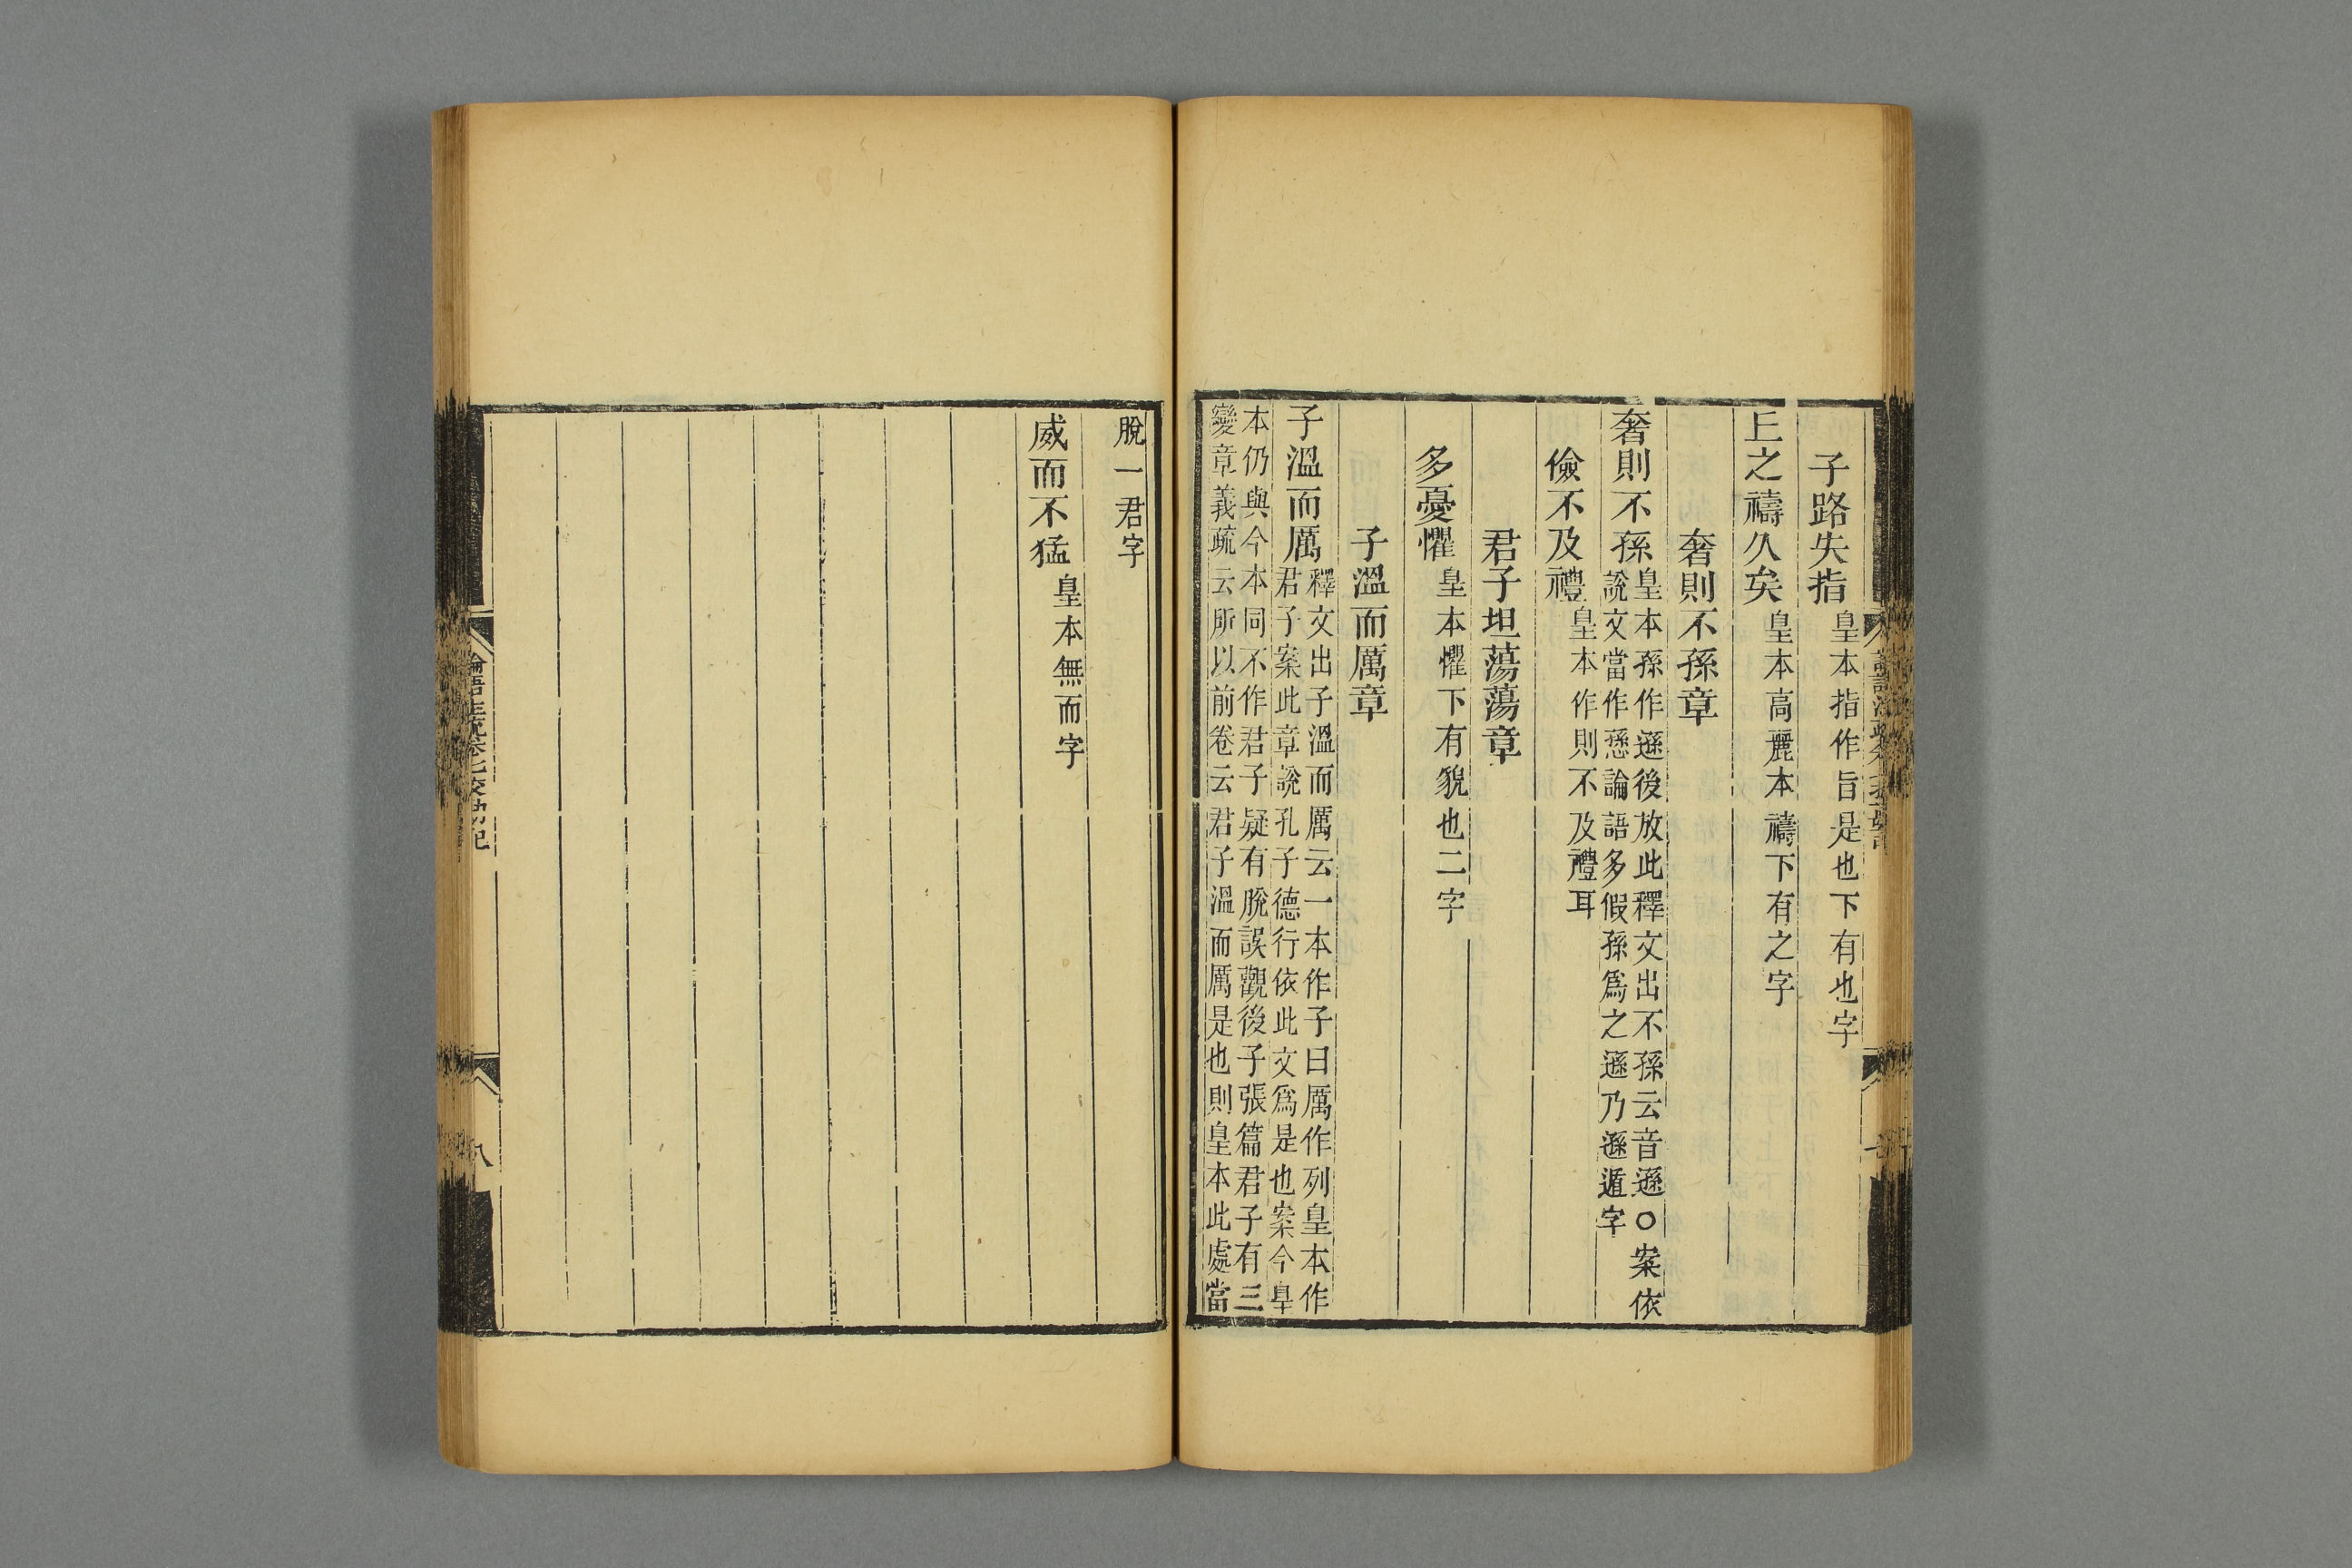 子路失指皇本指作旨是也下有也字
上之禱久矣皇本高麗本禱下有之字
奢則不孫章
奢則不孫皇本孫作遜後放此釋文出不孫云音遜○案依
說文當作愻論語多假孫爲之遜乃遜遁字
儉不及禮皇本作則不及禮耳
君子坦蕩蕩章
多憂懼皇本懼下有貌也二字
子溫而厲章
子溫而厲釋文出子溫而厲云一本作子曰厲作列皇本作
君子案此章說孔子德行依此文爲是也案今皇
本仍與今本同不作君子疑有脫誤觀後子張篇君子有三
變章義疏云所以前卷云君子溫而厲是也則皇本此處當
脫一君字
威而不猛皇本無而字
論語注疏卷七校勘記
八